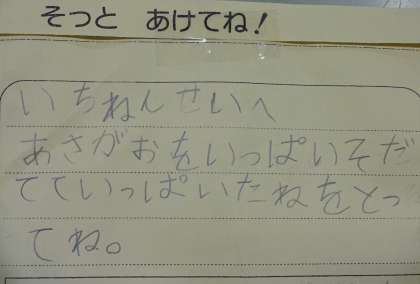 そっと あけてね!
いちねんせいへ
あさがおをいっぱいそだ
てていっぱいたねをとっ
てね。